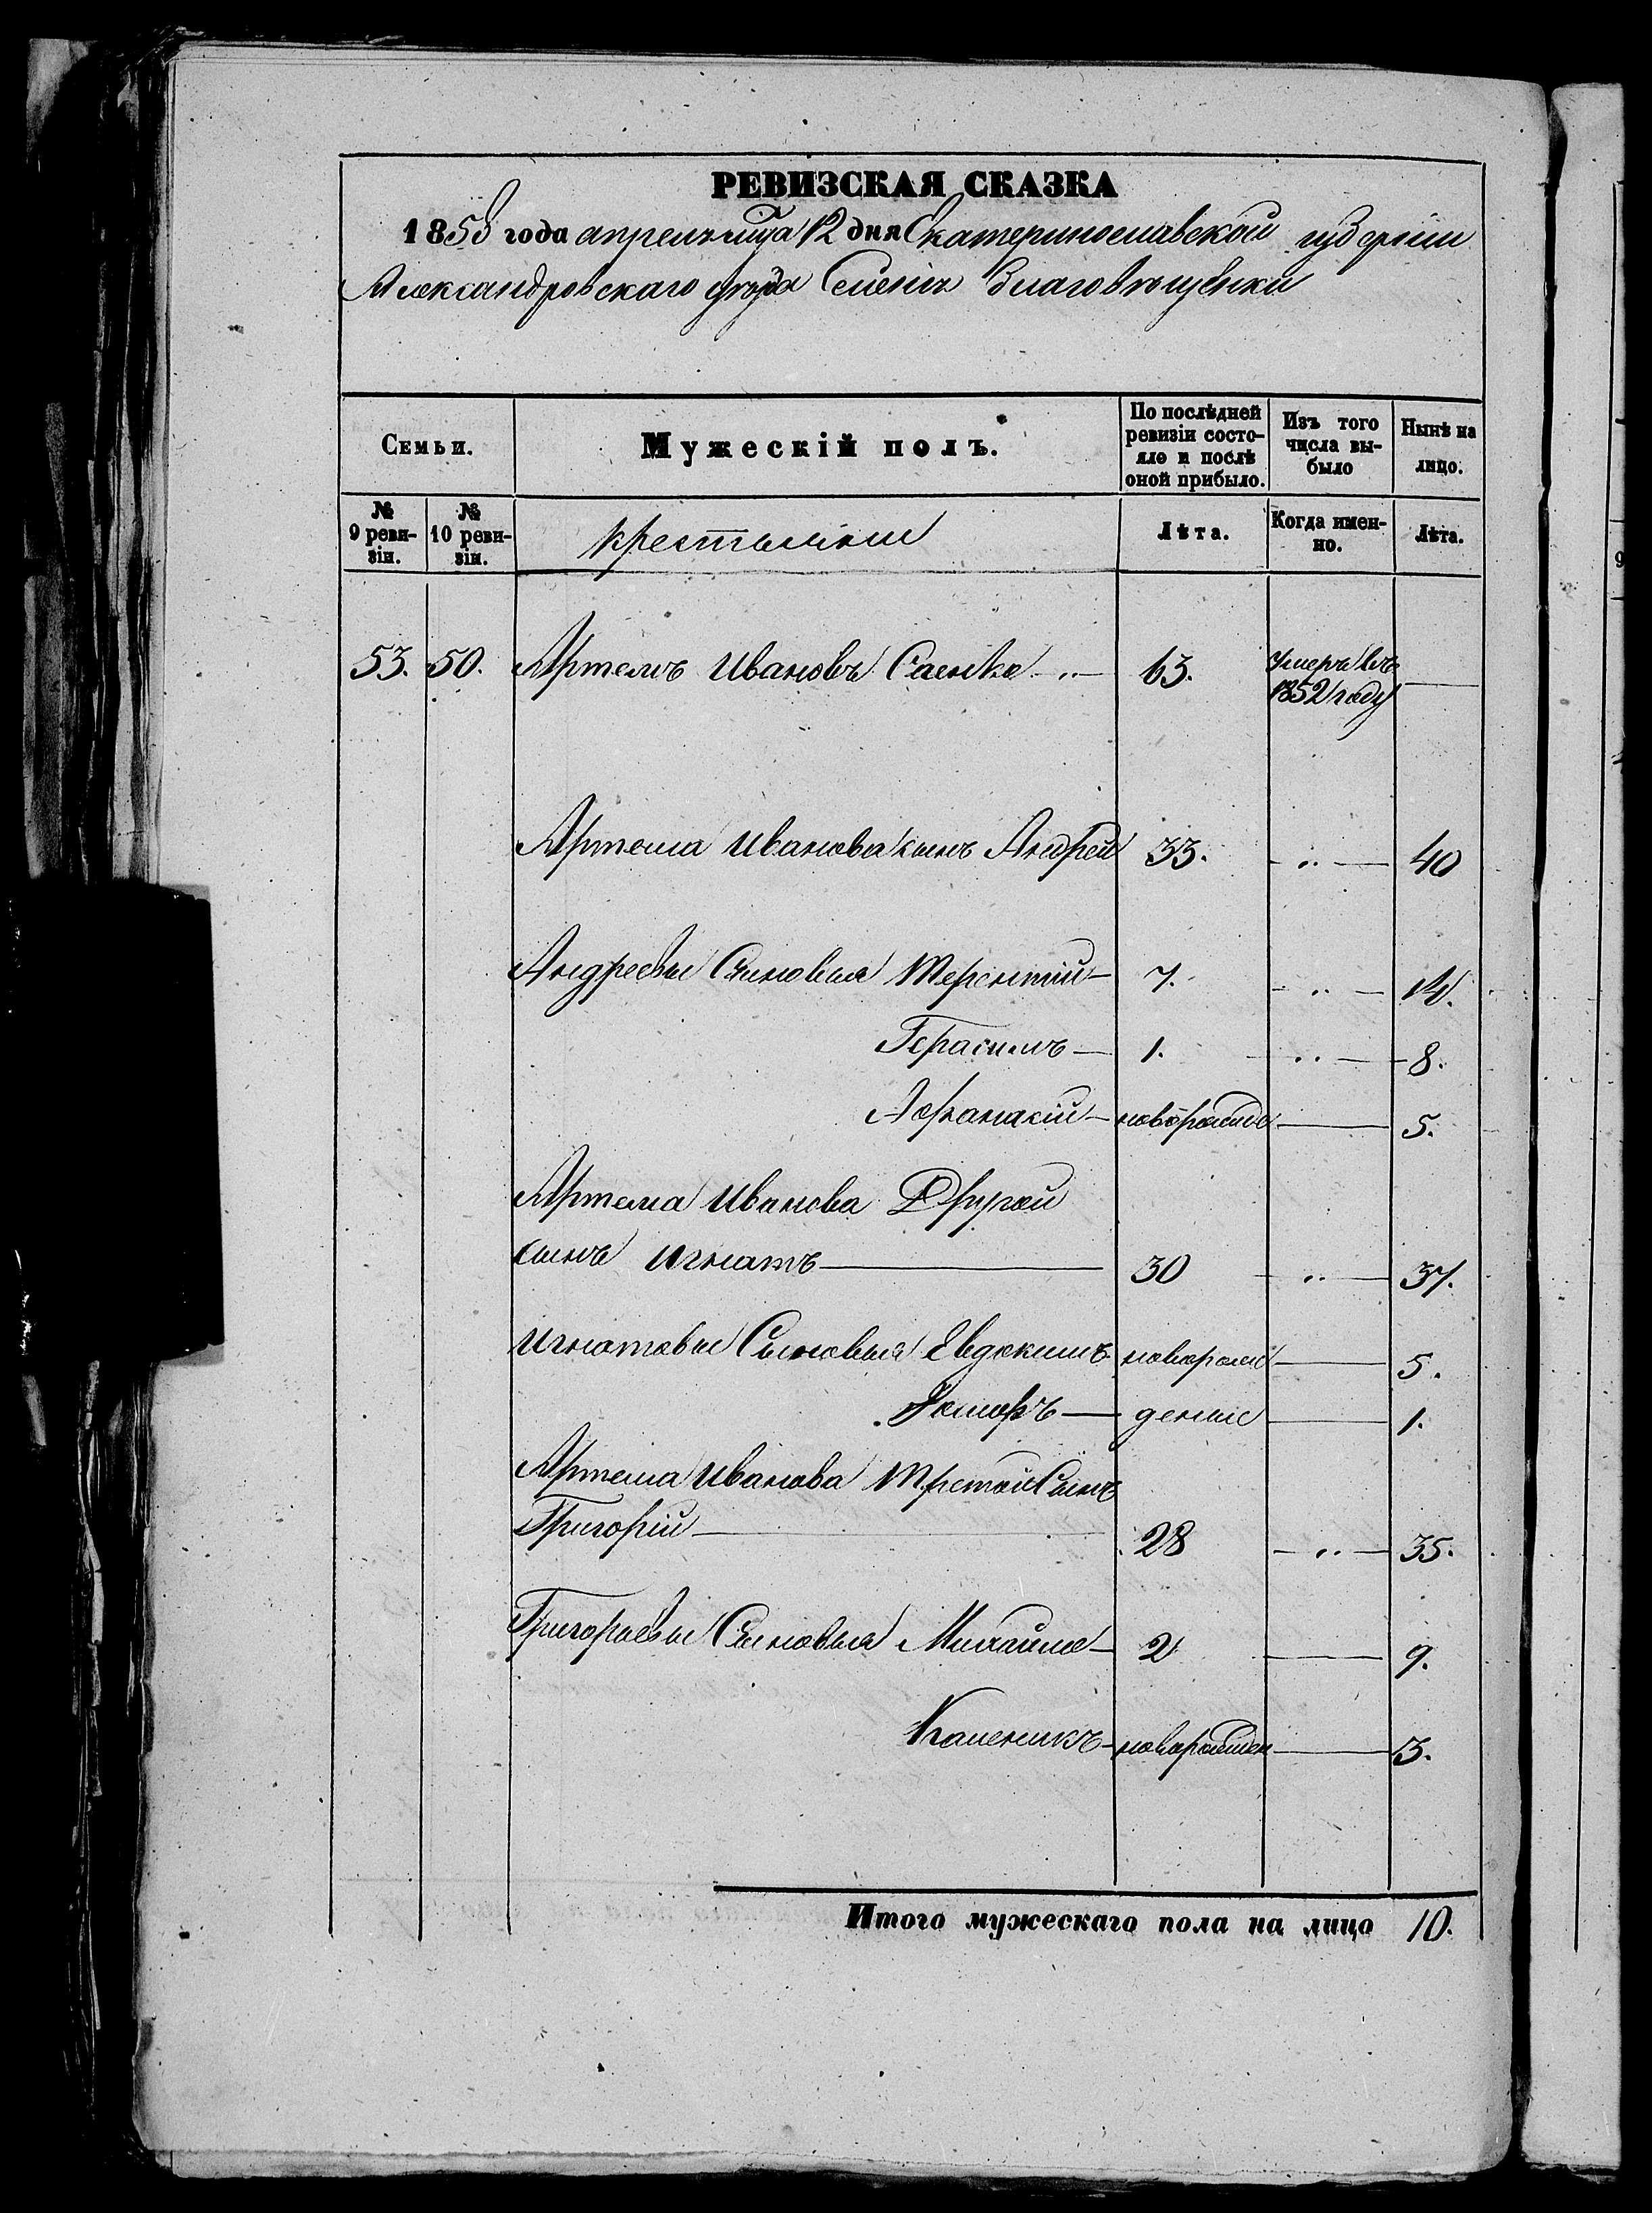 РЕВИЗСКАЯ СКАЗКА
1858 года апреля мца 12 дня Екатеринославской губернии
Александровскаго уезда Селенія Благовещенки
Семьи.
Мужескій полъ.
По послѣдней ревизіи состояло и послѣ оной прибыло.
Изъ того числа выбыло
Нынѣ на лицо.
№ 9 ревизіи.
№ 10 ревизіи.
крестьяне
Лѣта.
Когда именно.
Лѣта.
53. 50. Артемъ Ивановъ Саенко 63. Умеръ въ 1852 году
Артема Иванова сынъ Андрей 33. 40
Андреевы Сыновья Терентій 7. 14.
Герасимъ 1. 8.
Афанасій 5.
Артема Иванова Другой
сынъ Игнатъ 30 37.
Игнатовы Сыновья Евдокимъ новорож 5.
деные 1.
Артема Иванова Третой Сынъ
Григорій 28 35.
Григорьевы Сыновья Михайло 2 9.
Каленикъ 3.
Итого мужескаго пола на лицо 10.